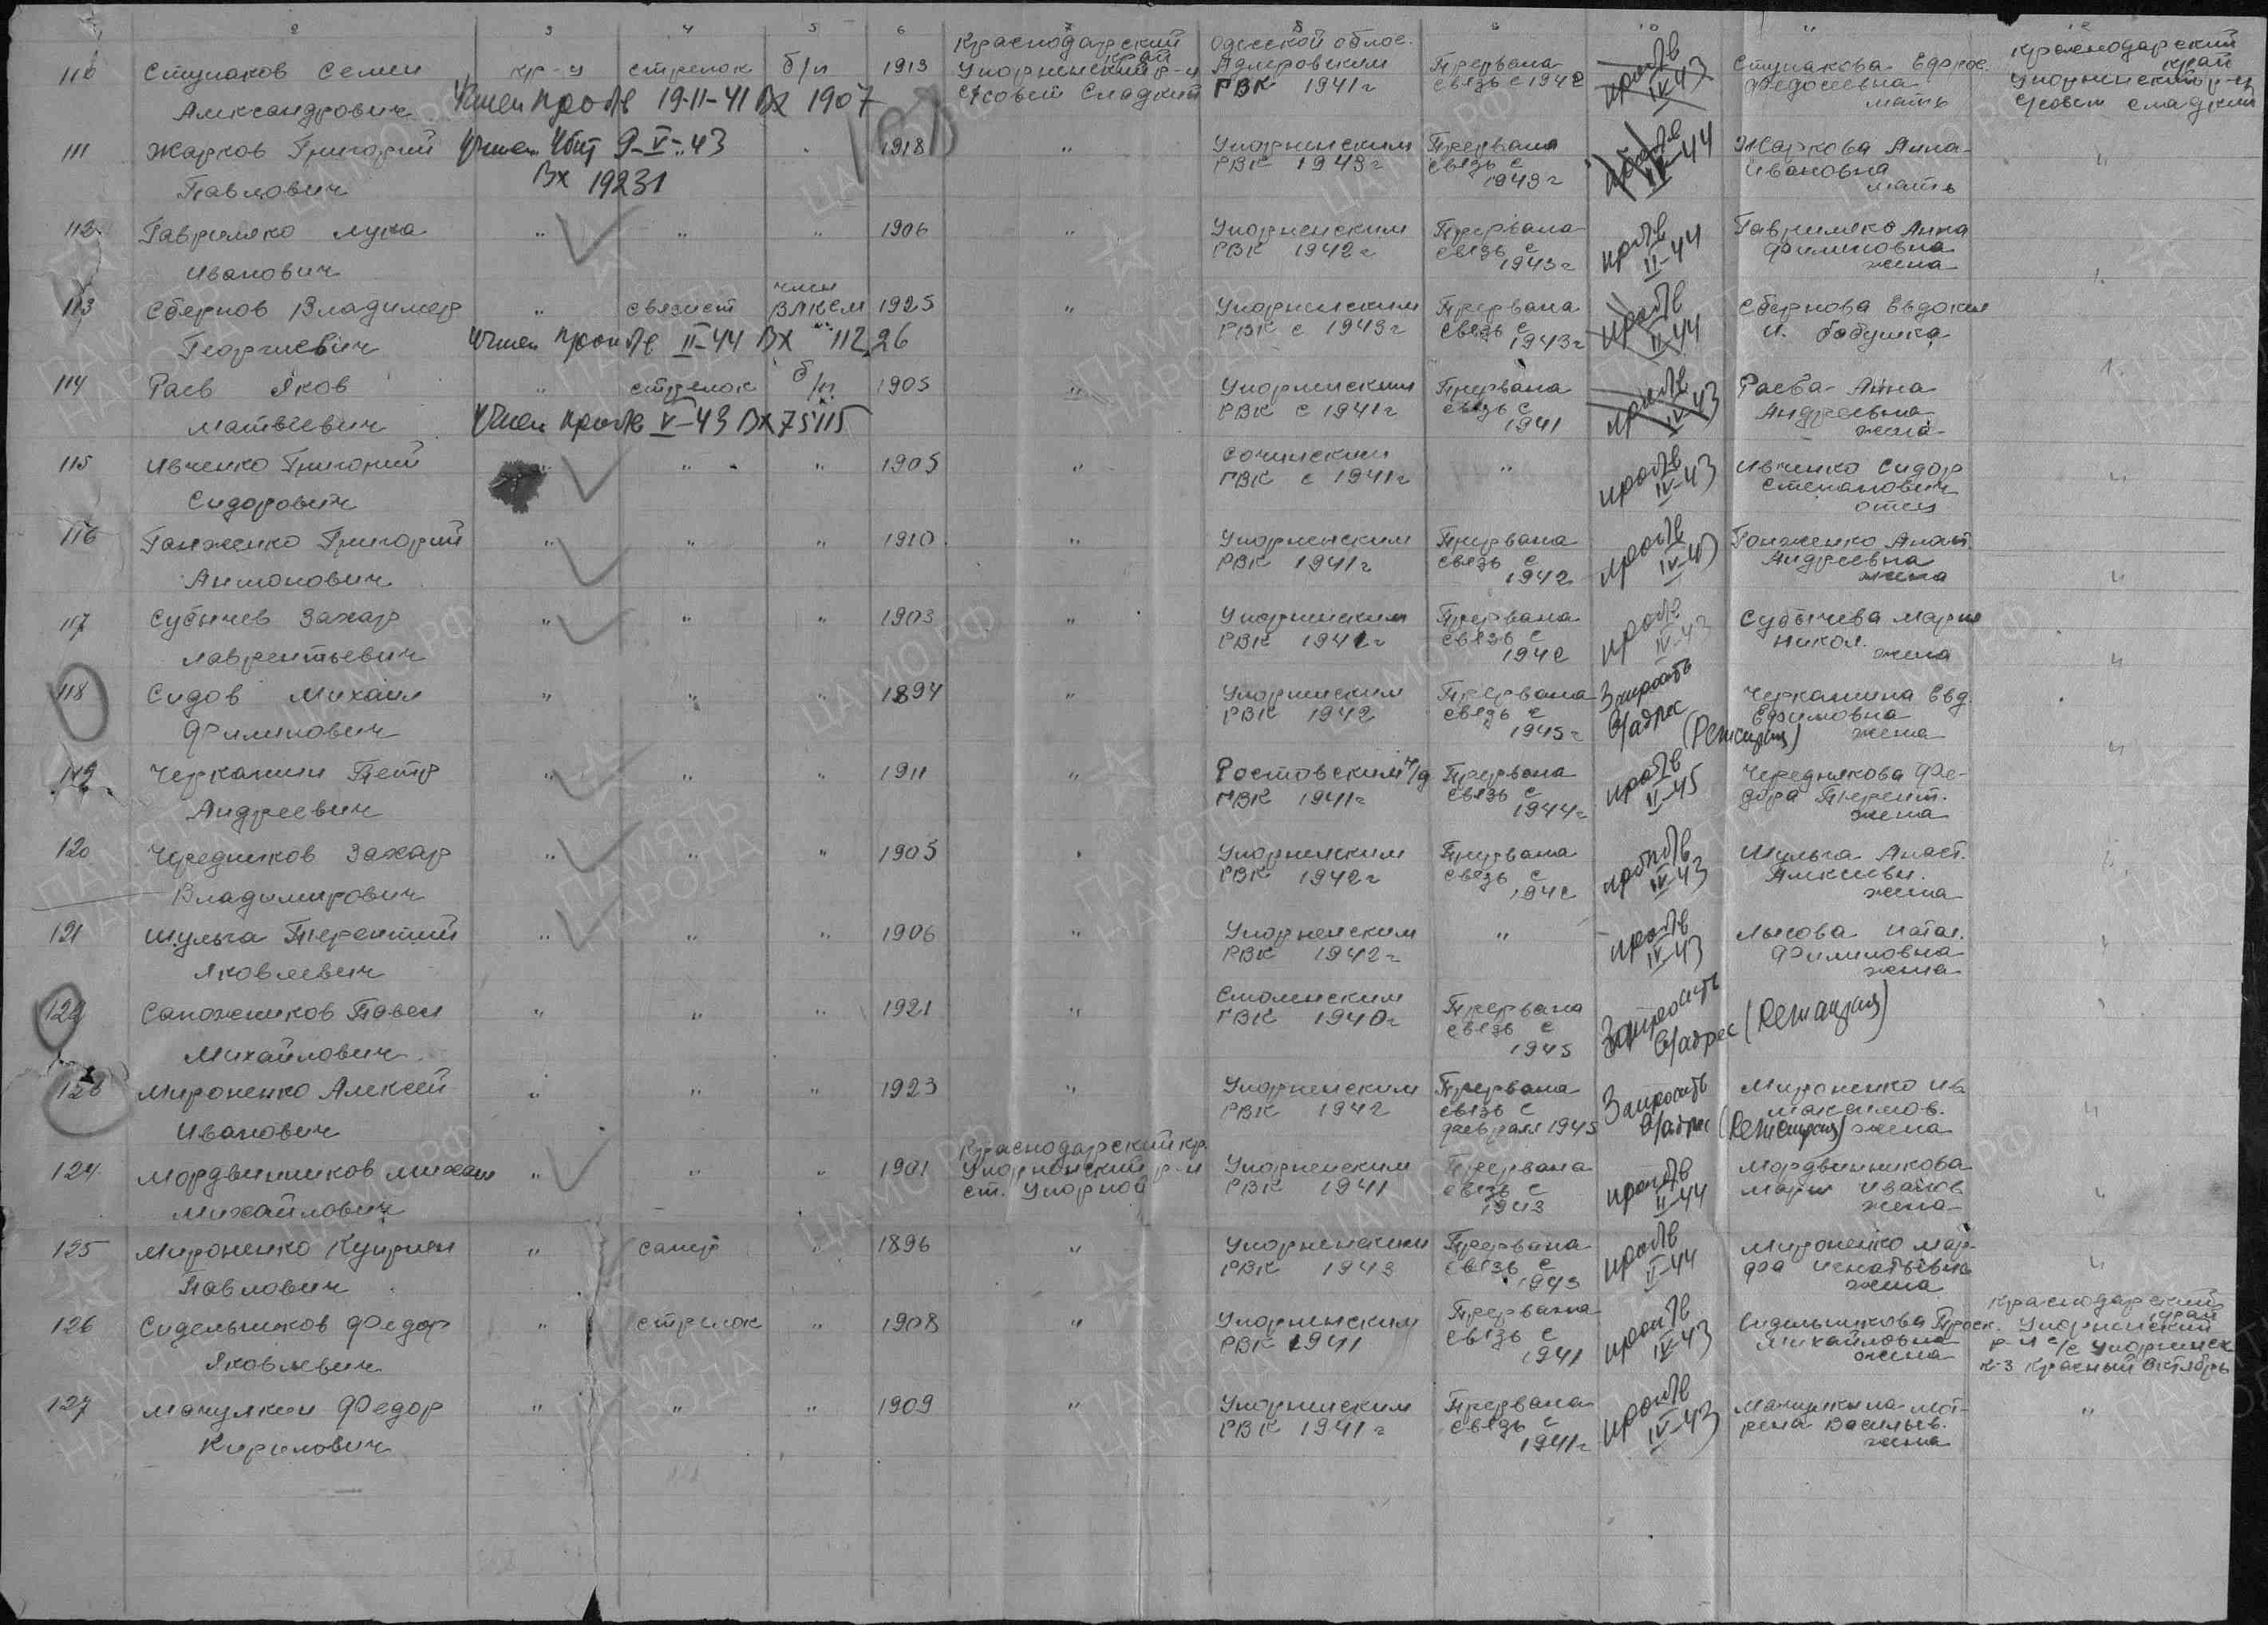 2 3 4 5 6 7 8 9 10 11 12
110 Ступаков Семен Александрович кр-ц стрелок б/п 1913 Краснодарский край Упорненский р-н с/совет Сладкий Одесской облас. РВК 1941 г Прервана связь с 1942 проп/в IV-43 Ступакова Ефрос. Федосеевна мать Краснодарский край Упорненский р-н с/совет Сладкий
Учтен проп/в 19-11-41 Вх 1907
111 Жарков Григорий Павлович " 1918 " Упорненским РВК 1943 г Прервана связь с 1943 г Жаркова Анна Ивановна мать "
Учтен Убит 9-V-43
Вх 19231
112 Гавриляко Лука Иванович " " " 1906 " Упорненским РВК 1942 г Прервана связь с 1943 г проп/в II-44 Гавриляко Анна Филиповна жена "
113 Сбернов Владимер Георгиевич " связист член ВЛКСМ 1925 " Упорненским РВК с 1943 г Прервана связь с 1943 г проп/в II-44 Сбернова Евдокия И. бабушка "
Учтен проп/в II-44 Вх 11226
114 Раев Яков Матвеевич " стрелок б/п 1905 " Упорненским РВК с 1941 г Прервана связь с 1941 проп/в IV-43 Раева Анна Андреевна жена "
Учтен проп/в V-43 Вх 75115
115 Ивченко Григорий Сидорович " " " 1905 " Сочинским ГВК с 1941 г " проп/в IV-43 Ивченко Сидор Степанович отец "
116 Ганженко Григорий Антонович " " " 1910 " Упорненским РВК 1941 г Прервана связь с 1942 проп/в IV-43 Ганженко Анаст. Андреевна жена "
117 Субычев Захар Лаврентьевич " " " 1903 " Упорненским РВК 1942 г Прервана связь с 1942 проп/в IV-43 Субычева Мария Никол. жена "
118 Сидов Михаил Филипович " " " 1894 " Упорненским РВК 1942 Прервана связь с 1945 г Запросить в/адрес Черкашина Евд. Ефимовна жена "
119 Черкашин Петр Андреевич " " " 1911 " Ростовским н/Д ГВК 1941 г Прервана связь с 1944 г проп/в II-45 Череднякова Федора Терент. жена "
120 Чередников Захар Владимирович " " " 1905 " Упорненским РВК 1942 г Прервана связь с 1942 проп/в IV-43 Шульга Анаст. Алексеевн. жена "
121 Шульга Терентий Яковлевич " " " 1906 " Упорненским РВК 1942 г " проп/в IV-43 Лысова Натал. Филиповна жена "
122 Сапожников Павел Михайлович " " " 1921 " Смоленским ГВК 1940 г Прервана связь с 1945 Запросить в/адрес "
123 Мироненко Алексей Иванович " " " 1923 " Упорненским РВК 1942 Прервана связь с февраля 1945 Запросить в/адрес Мироненко Ив. Максимов. жена "
124 Мордвинников Михаил Михайлович " " " 1901 Краснодарский кр. Упорненский р-н ст. Упорной Упорненским РВК 1941 Прервана связь с 1943 проп/в II-44 Мордвинникова Мария Иванов жена "
125 Мироненко Куприян Павлович " сапер " 1896 " Упорненским РВК 1943 Прервана связь с 1943 проп/в II-44 Мироненко Марфа Игнатьевна жена "
126 Сидельников Федор Яковлевич " стрелок " 1908 " Упорненским РВК 1941 Прервана связь с 1941 проп/в IV-43 Сидельникова Праск. Михайловна жена Краснодарский край Упорненский р-н с/с Упорненск к-з Красный Октябрь
127 Манулкин Федор Кирилович " " " 1909 " Упорненским РВК 1941 г Прервана связь с 1941 г проп/в IV-43 Манулкина Мотрена Васильев. жена "